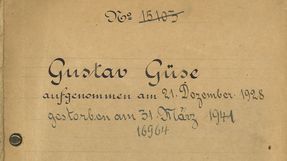 No 15403
Gustav Güse
aufgenommen am 21. Dezember 1928
gestorben am 31. März 1941
16964